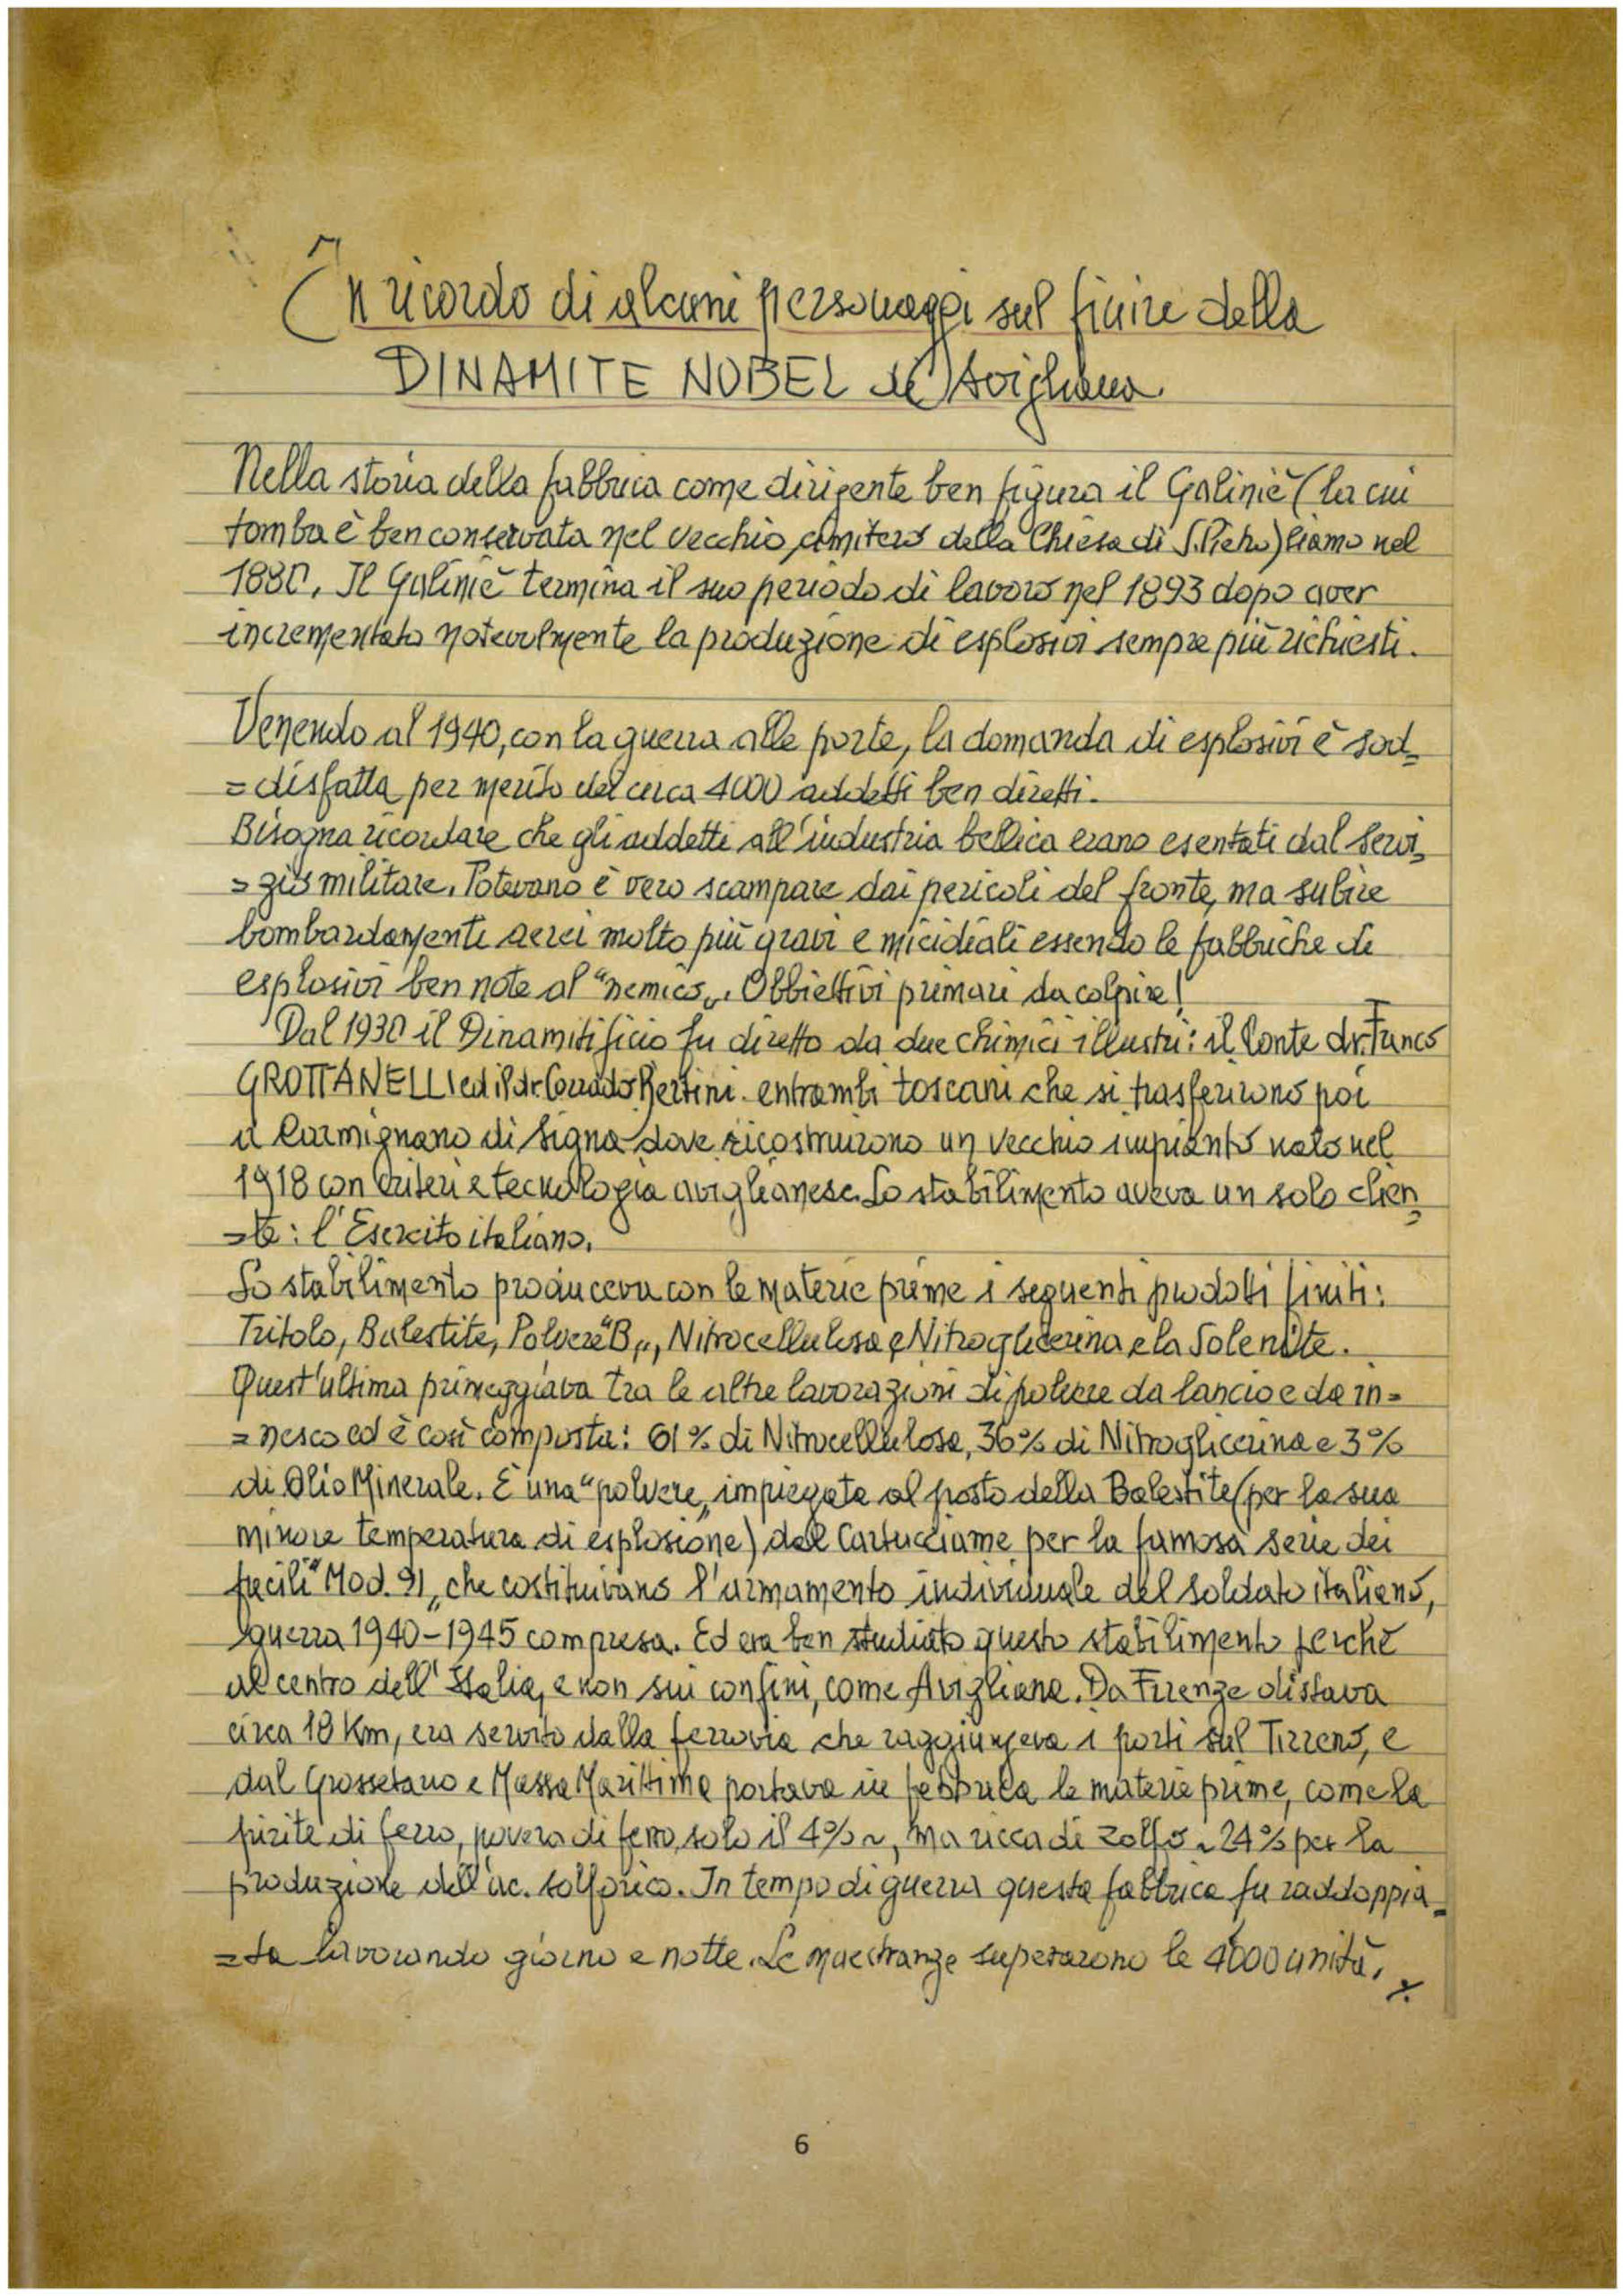 In ricordo di alcuni personaggi sul finire della
DINAMITE NOBEL di Avigliana
Nella storia della fabbrica come dirigente ben figura il Galiniè (la cui
tomba è ben conservata nel vecchio cimitero della Chiesa di S. Pietro) siamo nel
1880. Il Galiniè termina il suo periodo di lavoro nel 1893 dopo aver
incrementato notevolmente la produzione di esplosivi sempre più richiesti.
Venendo al 1940, con la guerra alle porte, la domanda di esplosivi è sod=
=disfatta per merito del circa 4000 addetti ben diretti.
Bisogna ricordare che gli addetti all'industria bellica erano esentati dal servi=
=zio militare. Potevano è vero scampare dai pericoli del fronte, ma subire
bombardamenti aerei molto più gravi e micidiali essendo le fabbriche di
esplosivi ben note al "nemico„. Obbiettivi primari da colpire!
Dal 1930 il Dinamitificio fu diretto da due chimici illustri: il Conte dr. Franco
GROTTANELLI ed il dr. Corrado Bertini. entrambi toscani che si trasferirono poi
a Carmignano di Signa dove ricostruirono un vecchio impianto nato nel
1918 con criteri e tecnologia aviglianese. Lo stabilimento aveva un solo clien=
=te: l'Esercito italiano.
Lo stabilimento produceva con le materie prime i seguenti prodotti finiti:
Tritolo, Balestite, Polvere "B„, Nitrocellulosa e Nitroglicerina e la Solenite.
Quest'ultima primeggiava tra le altre lavorazioni di polvere da lancio e da in=
=nesco ed è così composta: 61% di Nitrocellulosa, 36% di Nitroglicerina e 3%
di Olio Minerale. È una "polvere„ impiegata al posto della Balestite (per la sua
minore temperatura di esplosione) del Cartucciame per la famosa serie dei
fucili "Mod. 91„ che costituivano l'armamento individuale del soldato italiano,
guerra 1940-1945 compresa. Ed era ben studiato questo stabilimento perchè
al centro dell'Italia, e non sui confini, come Avigliana. Da Firenze distava
circa 18 Km, era servito dalla ferrovia che raggiungeva i porti sul Tirreno, e
dal Grossetano e Massa Marittima portava in fabbrica le materie prime, come la
pirite di ferro, povera di ferro, solo il 4% ~, ma ricca di zolfo ~ 24% per la
produzione dell'ac. solforico. In tempo di guerra questa fabbrica fu raddoppia=
=ta lavorando giorno e notte. Le maestranze superarono le 4000 unità.
6